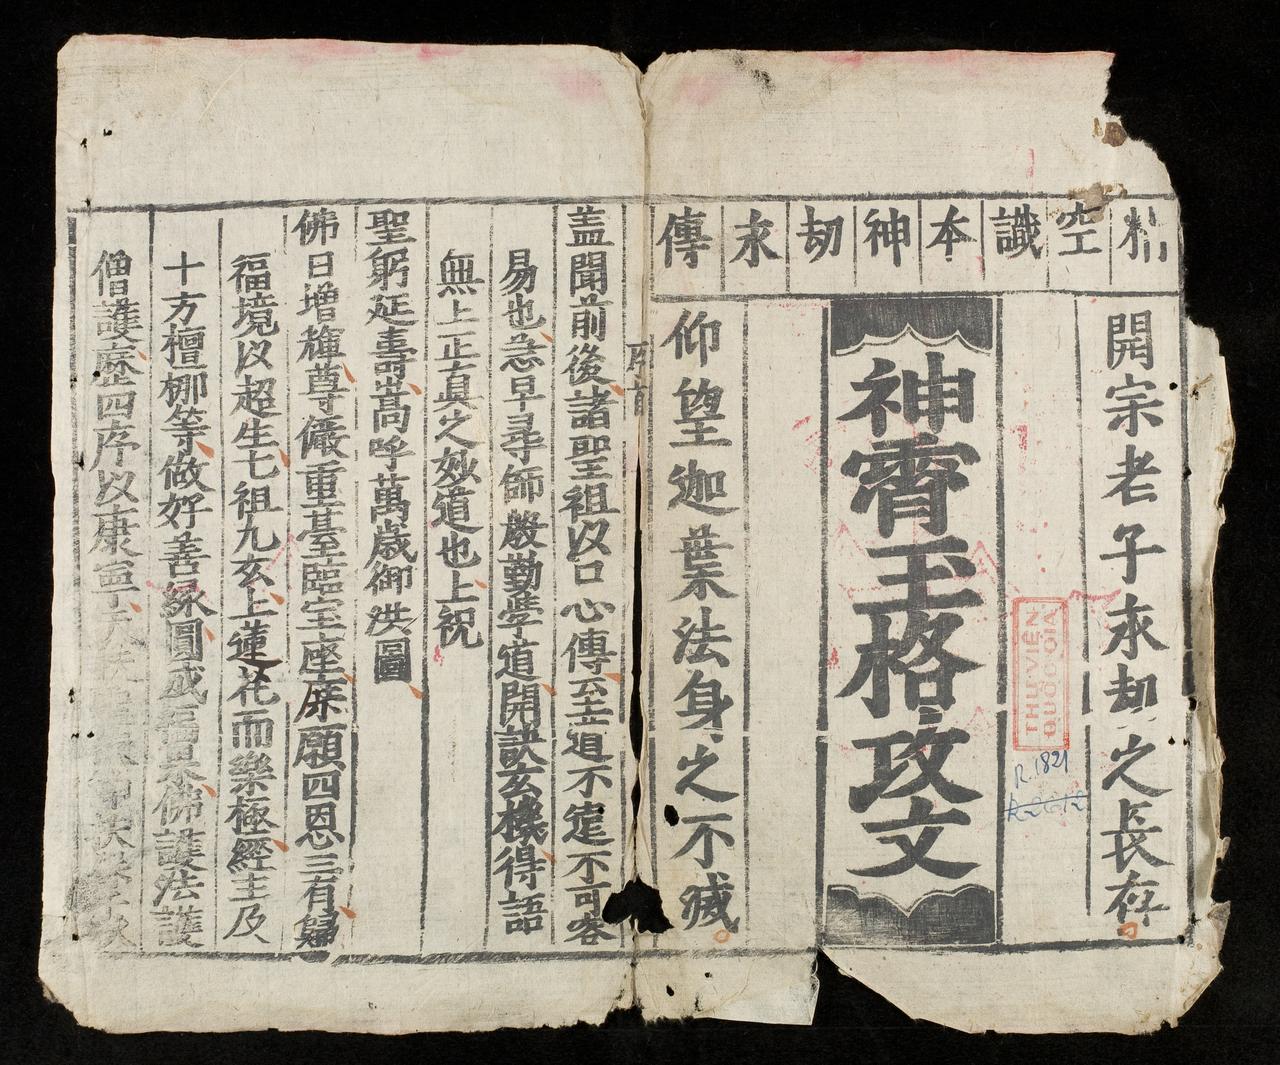 空識本神劫永傳
開宗老子永劫之長存
神霄玉格攻文
仰望迦葉法身之不滅
THƯ VIỆN
QUỐC GIA
R.1821
盖聞前後諸聖祖以口心傳至道不定不可容
易也急早尋師嚴勤學道開談玄機得語
無上正真之妙道也上祝
聖躬延壽嵩呼萬歲御洪圖
佛日增輝尊儼重臺臨宝座庶願四恩三有歸
福境以超生七祖九玄上蓮花而樂極經主及
十方檀那等做好善緣圓成福果佛護法護
僧護歷四序以康寧